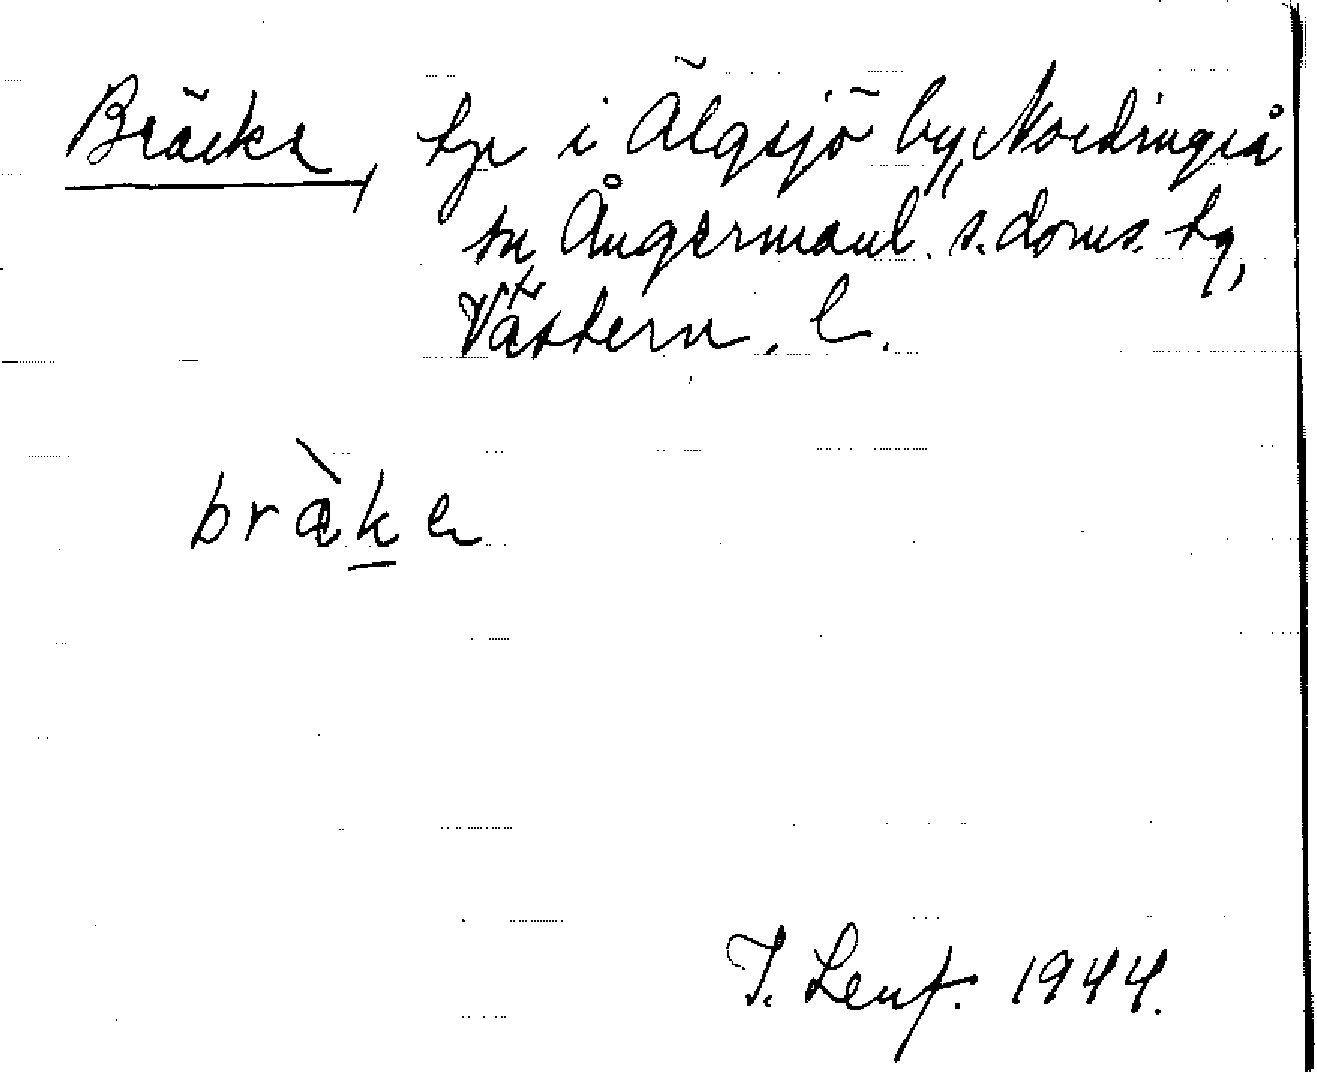 Bräcke, tp i Älgsjö by, Nordingrå
sn Ångermanl. s. doms. tg,
Västern. l.
bràke
J. Lenf. 1944.